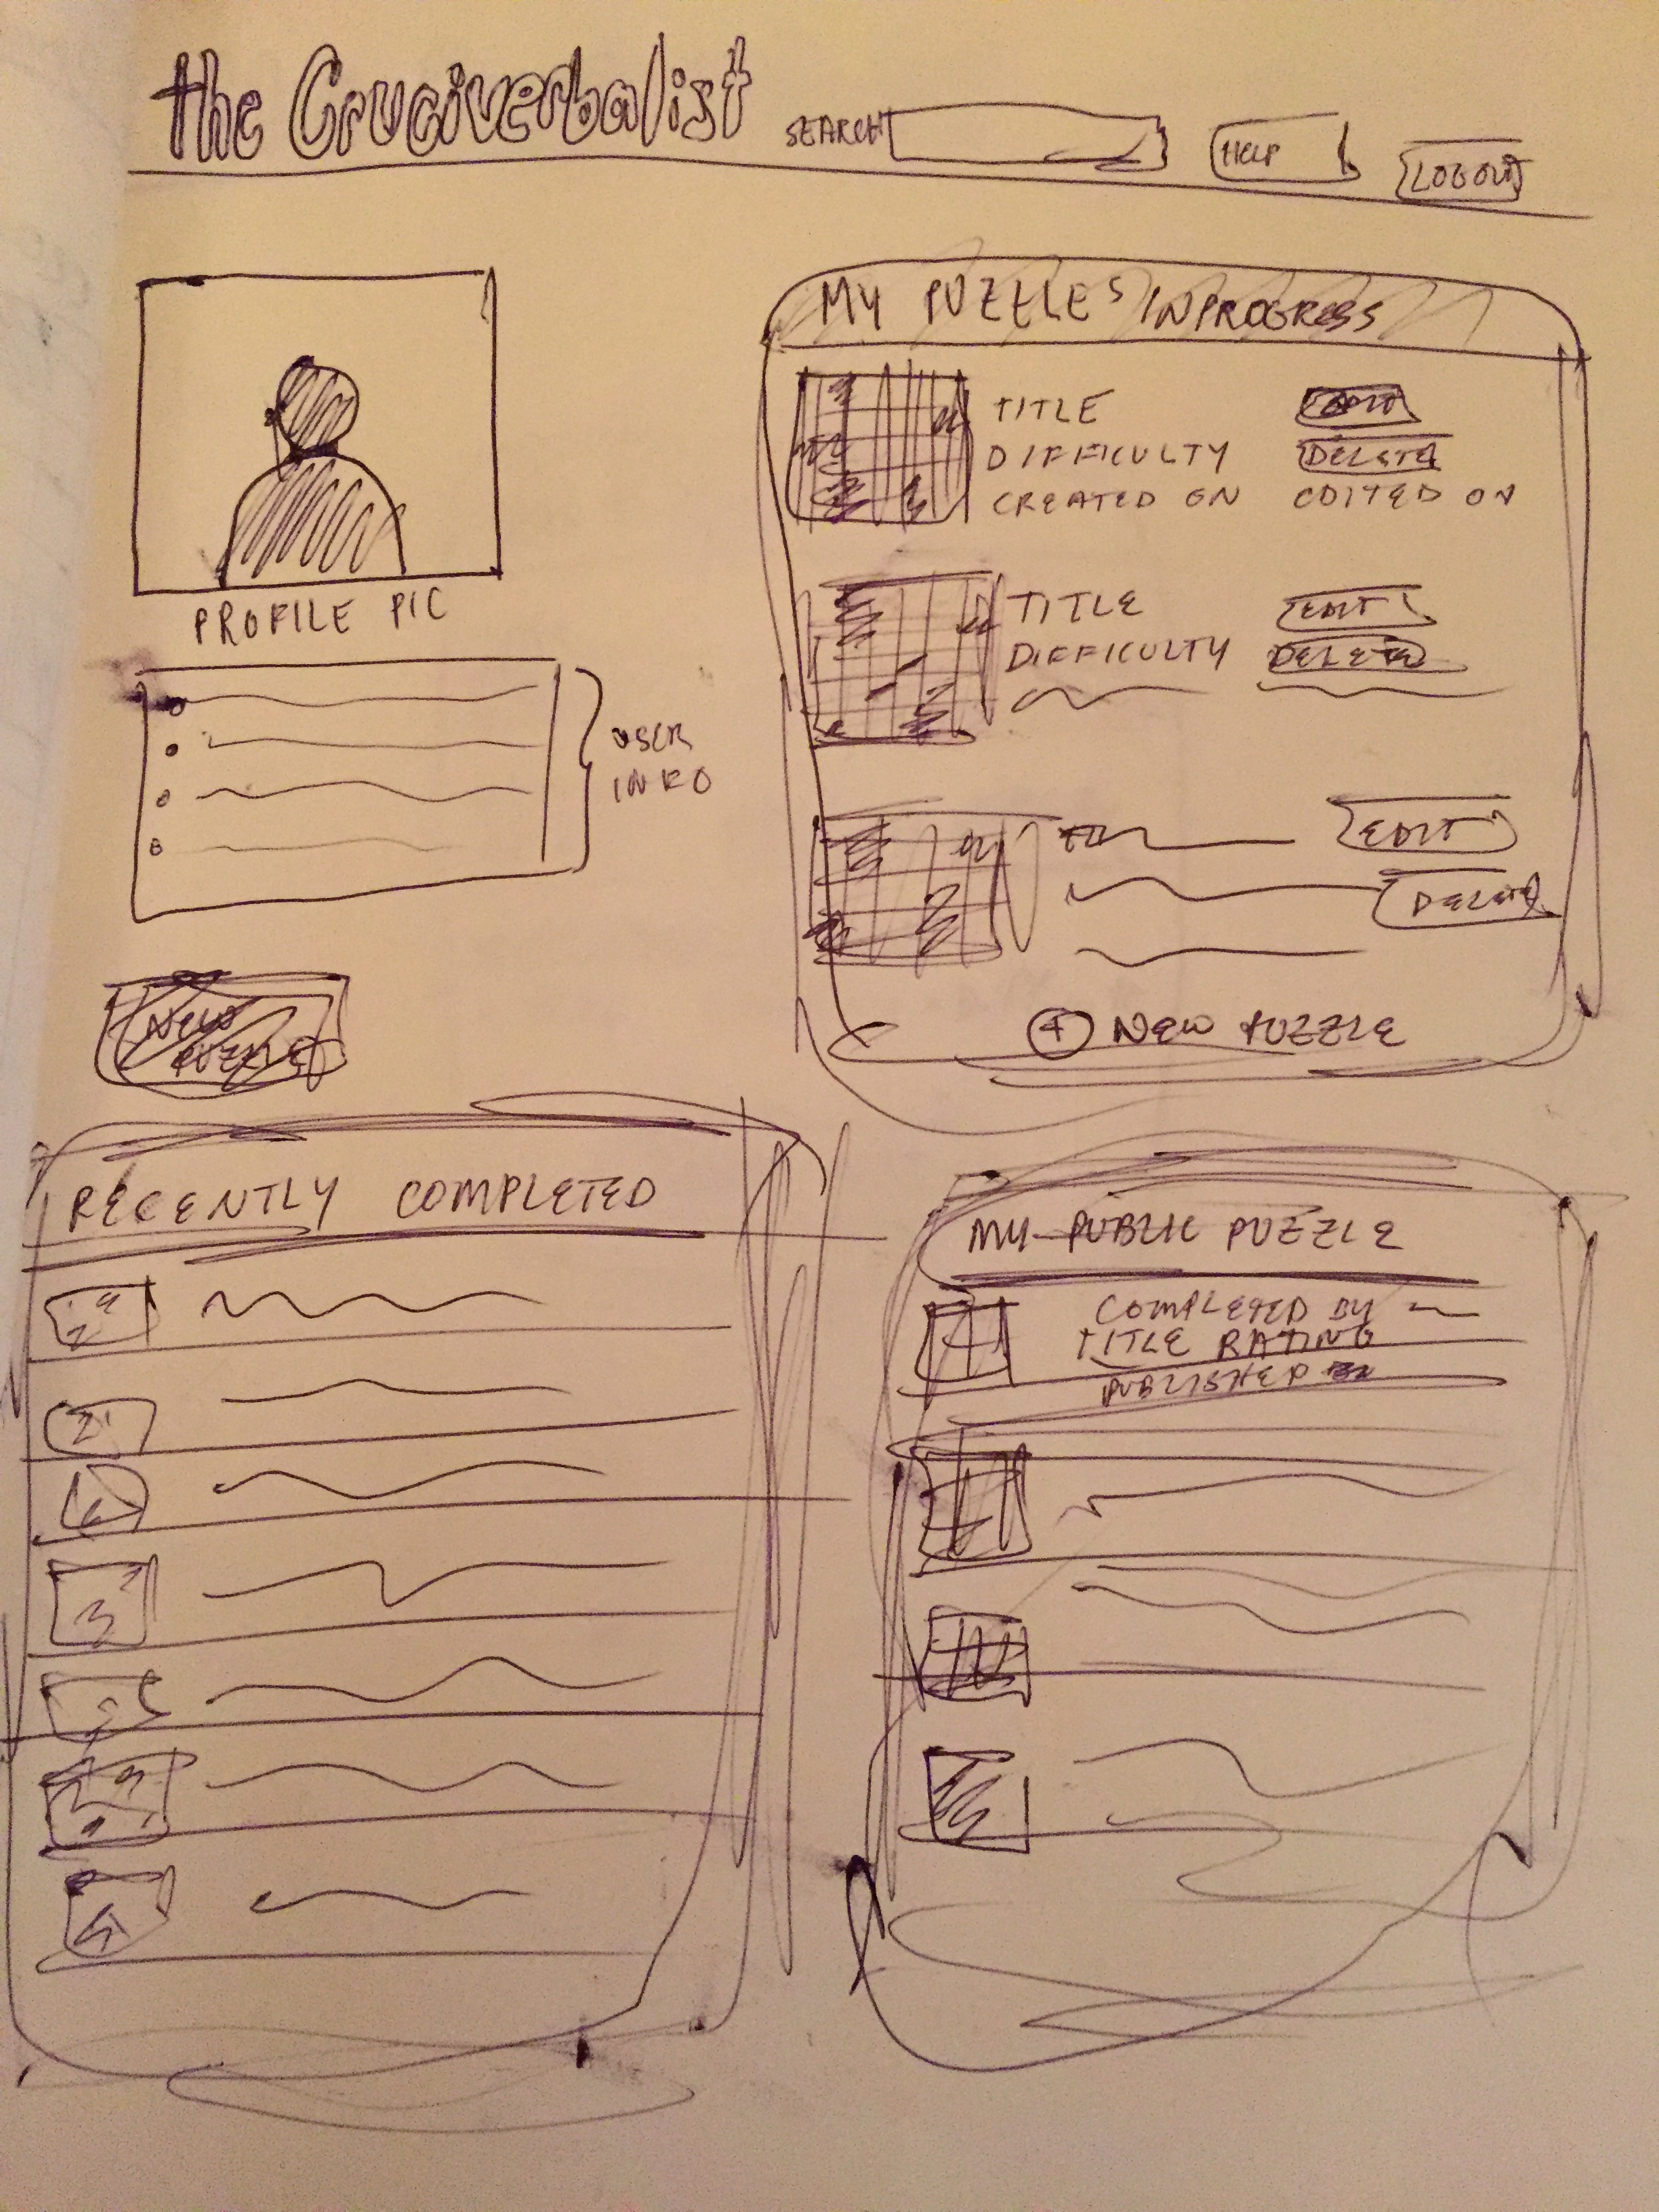 the Cruciverbalist
SEARCH
HELP
LOGOUT
PROFILE PIC
USER
INFO
MY PUZZLES IN PROGRESS
TITLE
EDIT
DIFFICULTY
DELETE
CREATED ON
EDITED ON
TITLE
EDIT
DIFFICULTY
DELETE
EDIT
DELETE
+ NEW PUZZLE
NEW
PUZZLE
RECENTLY COMPLETED
MY PUBLIC PUZZLE
COMPLETED BY
TITLE RATING
PUBLISHED